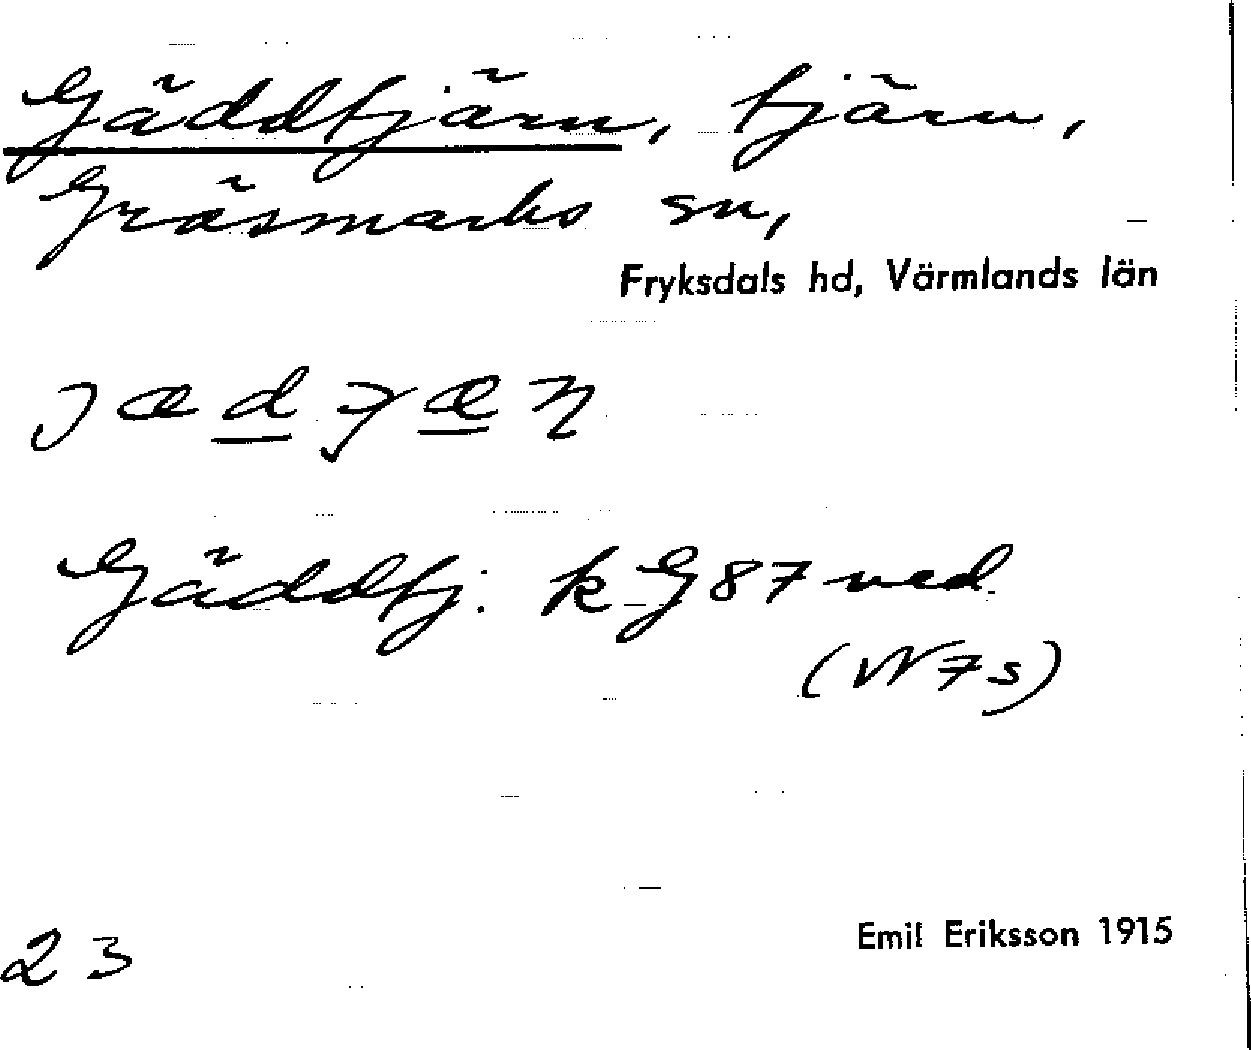 Gäddtjärn, tjärn,
Gräsmarks sn,
Fryksdals hd, Värmlands län
Gäddtj. k G87 ned.
(W7s)
Emil Eriksson 1915
23